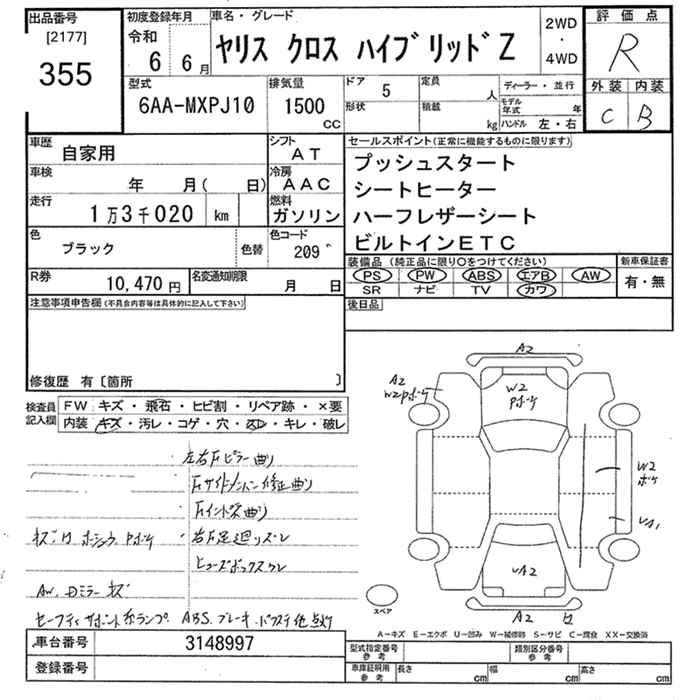 出品番号
[2177]
355
初度登録年月
令和
6 6月
車名・グレード
ヤリス クロス ハイブリッド Z
2WD
・
4WD
評価点
R
外装 内装
C B
型式
6AA-MXPJ10
排気量
1500
CC
ドア 5
形状
定員 人
積載 kg
ディーラー・並行
モデル年式 年
ハンドル 左・右
車歴
自家用
車検
年 月( 日)
走行
1万3千020 km
色
ブラック
色替
R券
10,470円
名変通知期限
月 日
シフト
AT
冷房
AAC
燃料
ガソリン
色コード
209
セールスポイント(正常に機能するものに限ります)
プッシュスタート
シートヒーター
ハーフレザーシート
ビルトインETC
装備品(純正品に限り○をつけてください)
PS PW ABS エアB AW
SR ナビ TV カワ
新車保証書
有・無
後日品
注意事項申告欄(不具合内容等は具体的に記入して下さい)
修復歴 有〔箇所 〕
検査員
記入欄
FW: キズ・飛石・ヒビ割・リペア跡・×要
内装: キズ・汚レ・コゲ・穴・凹・キレ・破レ
左右Fピラー曲り
Fサイドメンバー修正曲り
Fインナー曲り
右F足廻りズレ
ヒューズボックスワレ
AW, Dミラー キズ
A2
A2
W2Pボケ
W2
Pボケ
W2
ボケ
A1
A2
A2
スペア
A-キズ E-エクボ U-凹み W-補修跡 S-サビ C-腐食 XX-交換済
車台番号
3148997
登録番号
型式指定番号
参考
類別区分番号
参考
車庫証明用
参考
長さ cm 幅 cm 高さ cm